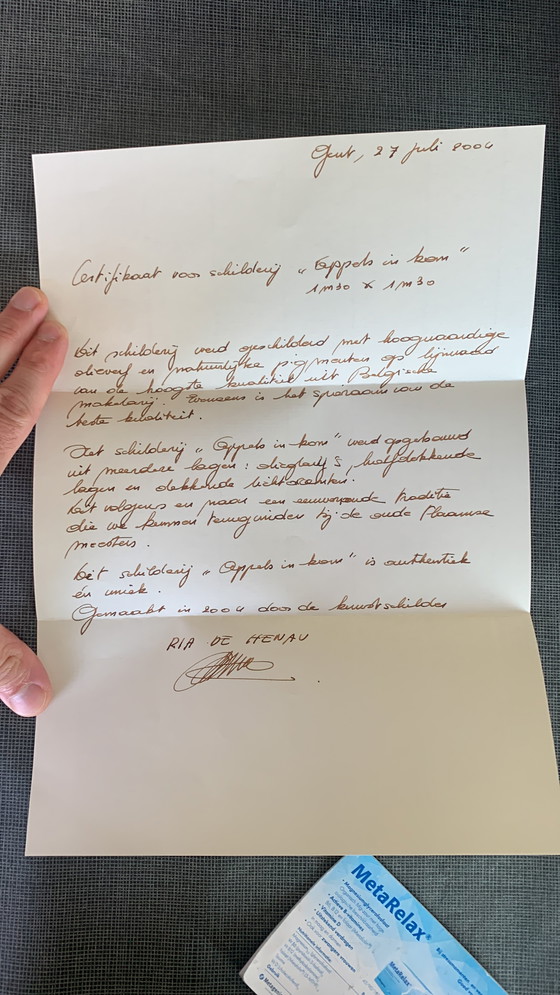 Gent, 27 juli 2004
Certifikaat voor schilderij „Appels in kom"
1m30 x 1m30
Dit schilderij werd geschilderd met hoogwaardige
olieverf en natuurlijke pigmenten op lijnwaad
van de hoogste kwaliteit uit Belgische
makelarij. Eveneens is het spieraam van de
beste kwaliteit.
Het schilderij „Appels in kom" werd opgebouwd
uit meerdere lagen: olieglacis, halfdekkende
lagen en dekkende lichtaccenten.
Dit volgens en naar een eeuwenoude traditie
die we kunnen terugvinden bij de oude Vlaamse
meesters.
Dit schilderij „Appels in kom" is authentiek
en uniek.
Gemaakt in 2004 door de kunstschilder
RIA DE HENAU
MetaRelax®
• Magnesiumglycerofosfaat
• Vitamine D
• Uitstekend verdragen